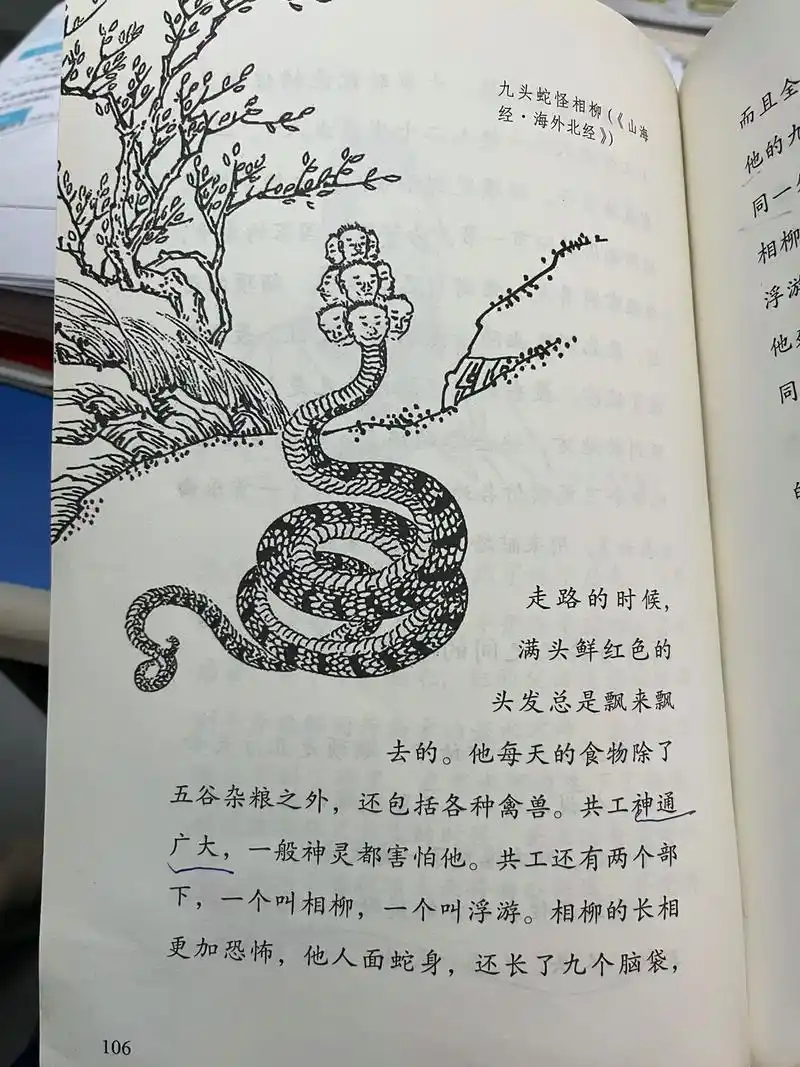 九头蛇怪相柳(《山海
经·海外北经》)
走路的时候，
满头鲜红色的
头发总是飘来飘
去的。他每天的食物除了
五谷杂粮之外，还包括各种禽兽。共工神通
广大，一般神灵都害怕他。共工还有两个部
下，一个叫相柳，一个叫浮游。相柳的长相
更加恐怖，他人面蛇身，还长了九个脑袋，
106
而且全
他的九
同一
相柳
浮游
他
同